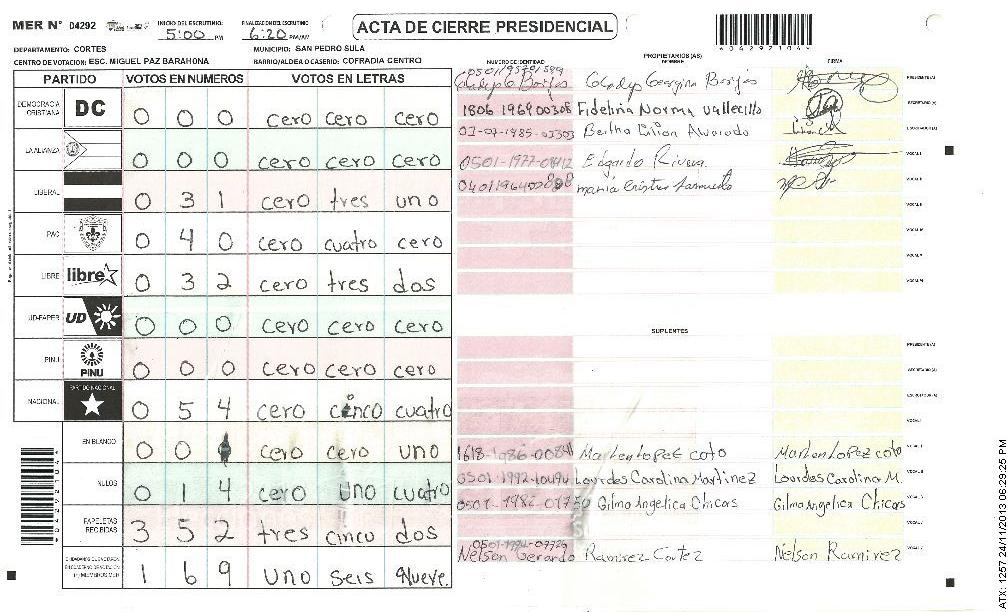 MER Nº 04292 INICIO DEL ESCRUTINIO: 5:00 PM FINALIZACION DEL ESCRUTINIO 6:20 PM/AM
ACTA DE CIERRE PRESIDENCIAL
604292106
DEPARTAMENTO: CORTES MUNICIPIO: SAN PEDRO SULA
CENTRO DE VOTACION: ESC. MIGUEL PAZ BARAHONA BARRIO/ALDEA O CASERIO: COFRADIA CENTRO
NUMERO DE IDENTIDAD PROPIETARIOS (AS) NOMBRE FIRMA
PARTIDO VOTOS EN NUMEROS VOTOS EN LETRAS
DEMOCRACIA CRISTIANA DC 0 0 0 cero cero cero
LA ALIANZA 0 0 0 cero cero cero
LIBERAL 0 3 1 cero tres uno
PAC 0 4 0 cero cuatro cero
LIBRE libre 0 3 2 cero tres dos
UD-FAPER UD 0 0 0 cero cero cero
PINU PINU 0 0 0 cero cero cero
NACIONAL PARTIDO NACIONAL 0 5 4 cero cinco cuatro
EN BLANCO 0 0 cero cero uno
NULOS 0 1 4 cero uno cuatro
PAPELETAS RECIBIDAS 3 5 2 tres cinco dos
1 6 9 uno seis nueve
Gladys Georgina Borjas PRESIDENTE (A)
Fidelina Norma Vallecillo SECRETARIO (A)
Bertha Lilian Alvarado ESCRUTADOR (A)
Edgardo Rivera VOCAL I
maria cristina VOCAL II
SUPLENTES
PRESIDENTE (A)
SECRETARIO (A)
ESCRUTADOR (A)
Marlen Lopez coto Marlen Lopez coto
Lourdes Carolina Martinez Lourdes Carolina M.
Gilma Angelica Chicas Gilma Angelica Chicas
Nelson Gerardo Ramirez Cortez Nelson Ramirez
ATX: 1257 24/11/2013 06:29:25 PM